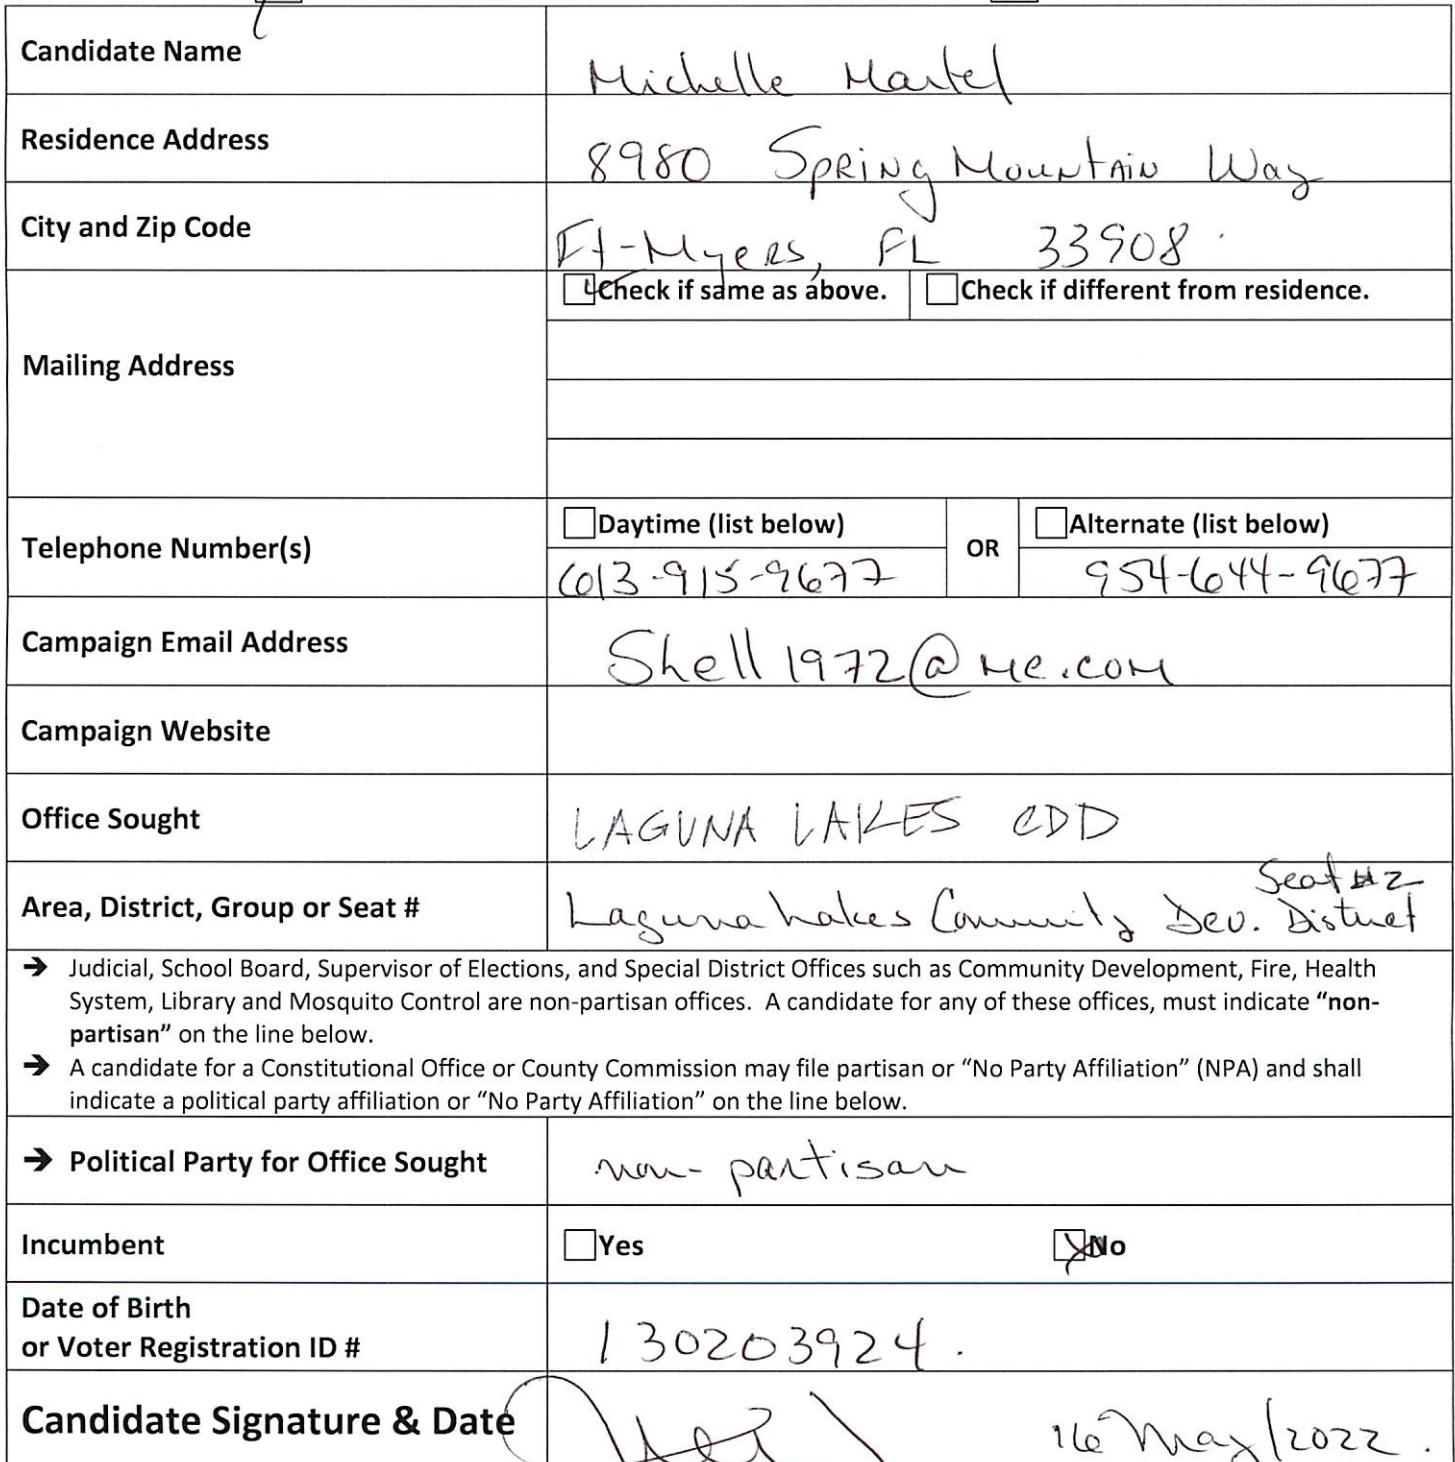 Candidate Name Michelle Martel
Residence Address 8980 Spring Mountain Way
City and Zip Code Ft-Myers, FL 33908
Check if same as above. Check if different from residence.
Mailing Address
Daytime (list below) OR Alternate (list below)
Telephone Number(s) 613-915-9677 954-644-9677
Campaign Email Address Shell1972@me.com
Campaign Website
Office Sought LAGUNA LAKES CDD
Seat #2
Area, District, Group or Seat # Laguna Lakes Community Dev. District
→ Judicial, School Board, Supervisor of Elections, and Special District Offices such as Community Development, Fire, Health
System, Library and Mosquito Control are non-partisan offices. A candidate for any of these offices, must indicate “non-
partisan” on the line below.
→ A candidate for a Constitutional Office or County Commission may file partisan or “No Party Affiliation” (NPA) and shall
indicate a political party affiliation or “No Party Affiliation” on the line below.
→ Political Party for Office Sought non-partisan
Incumbent Yes No
Date of Birth
or Voter Registration ID # 130203924.
Candidate Signature & Date 16 May/2022.